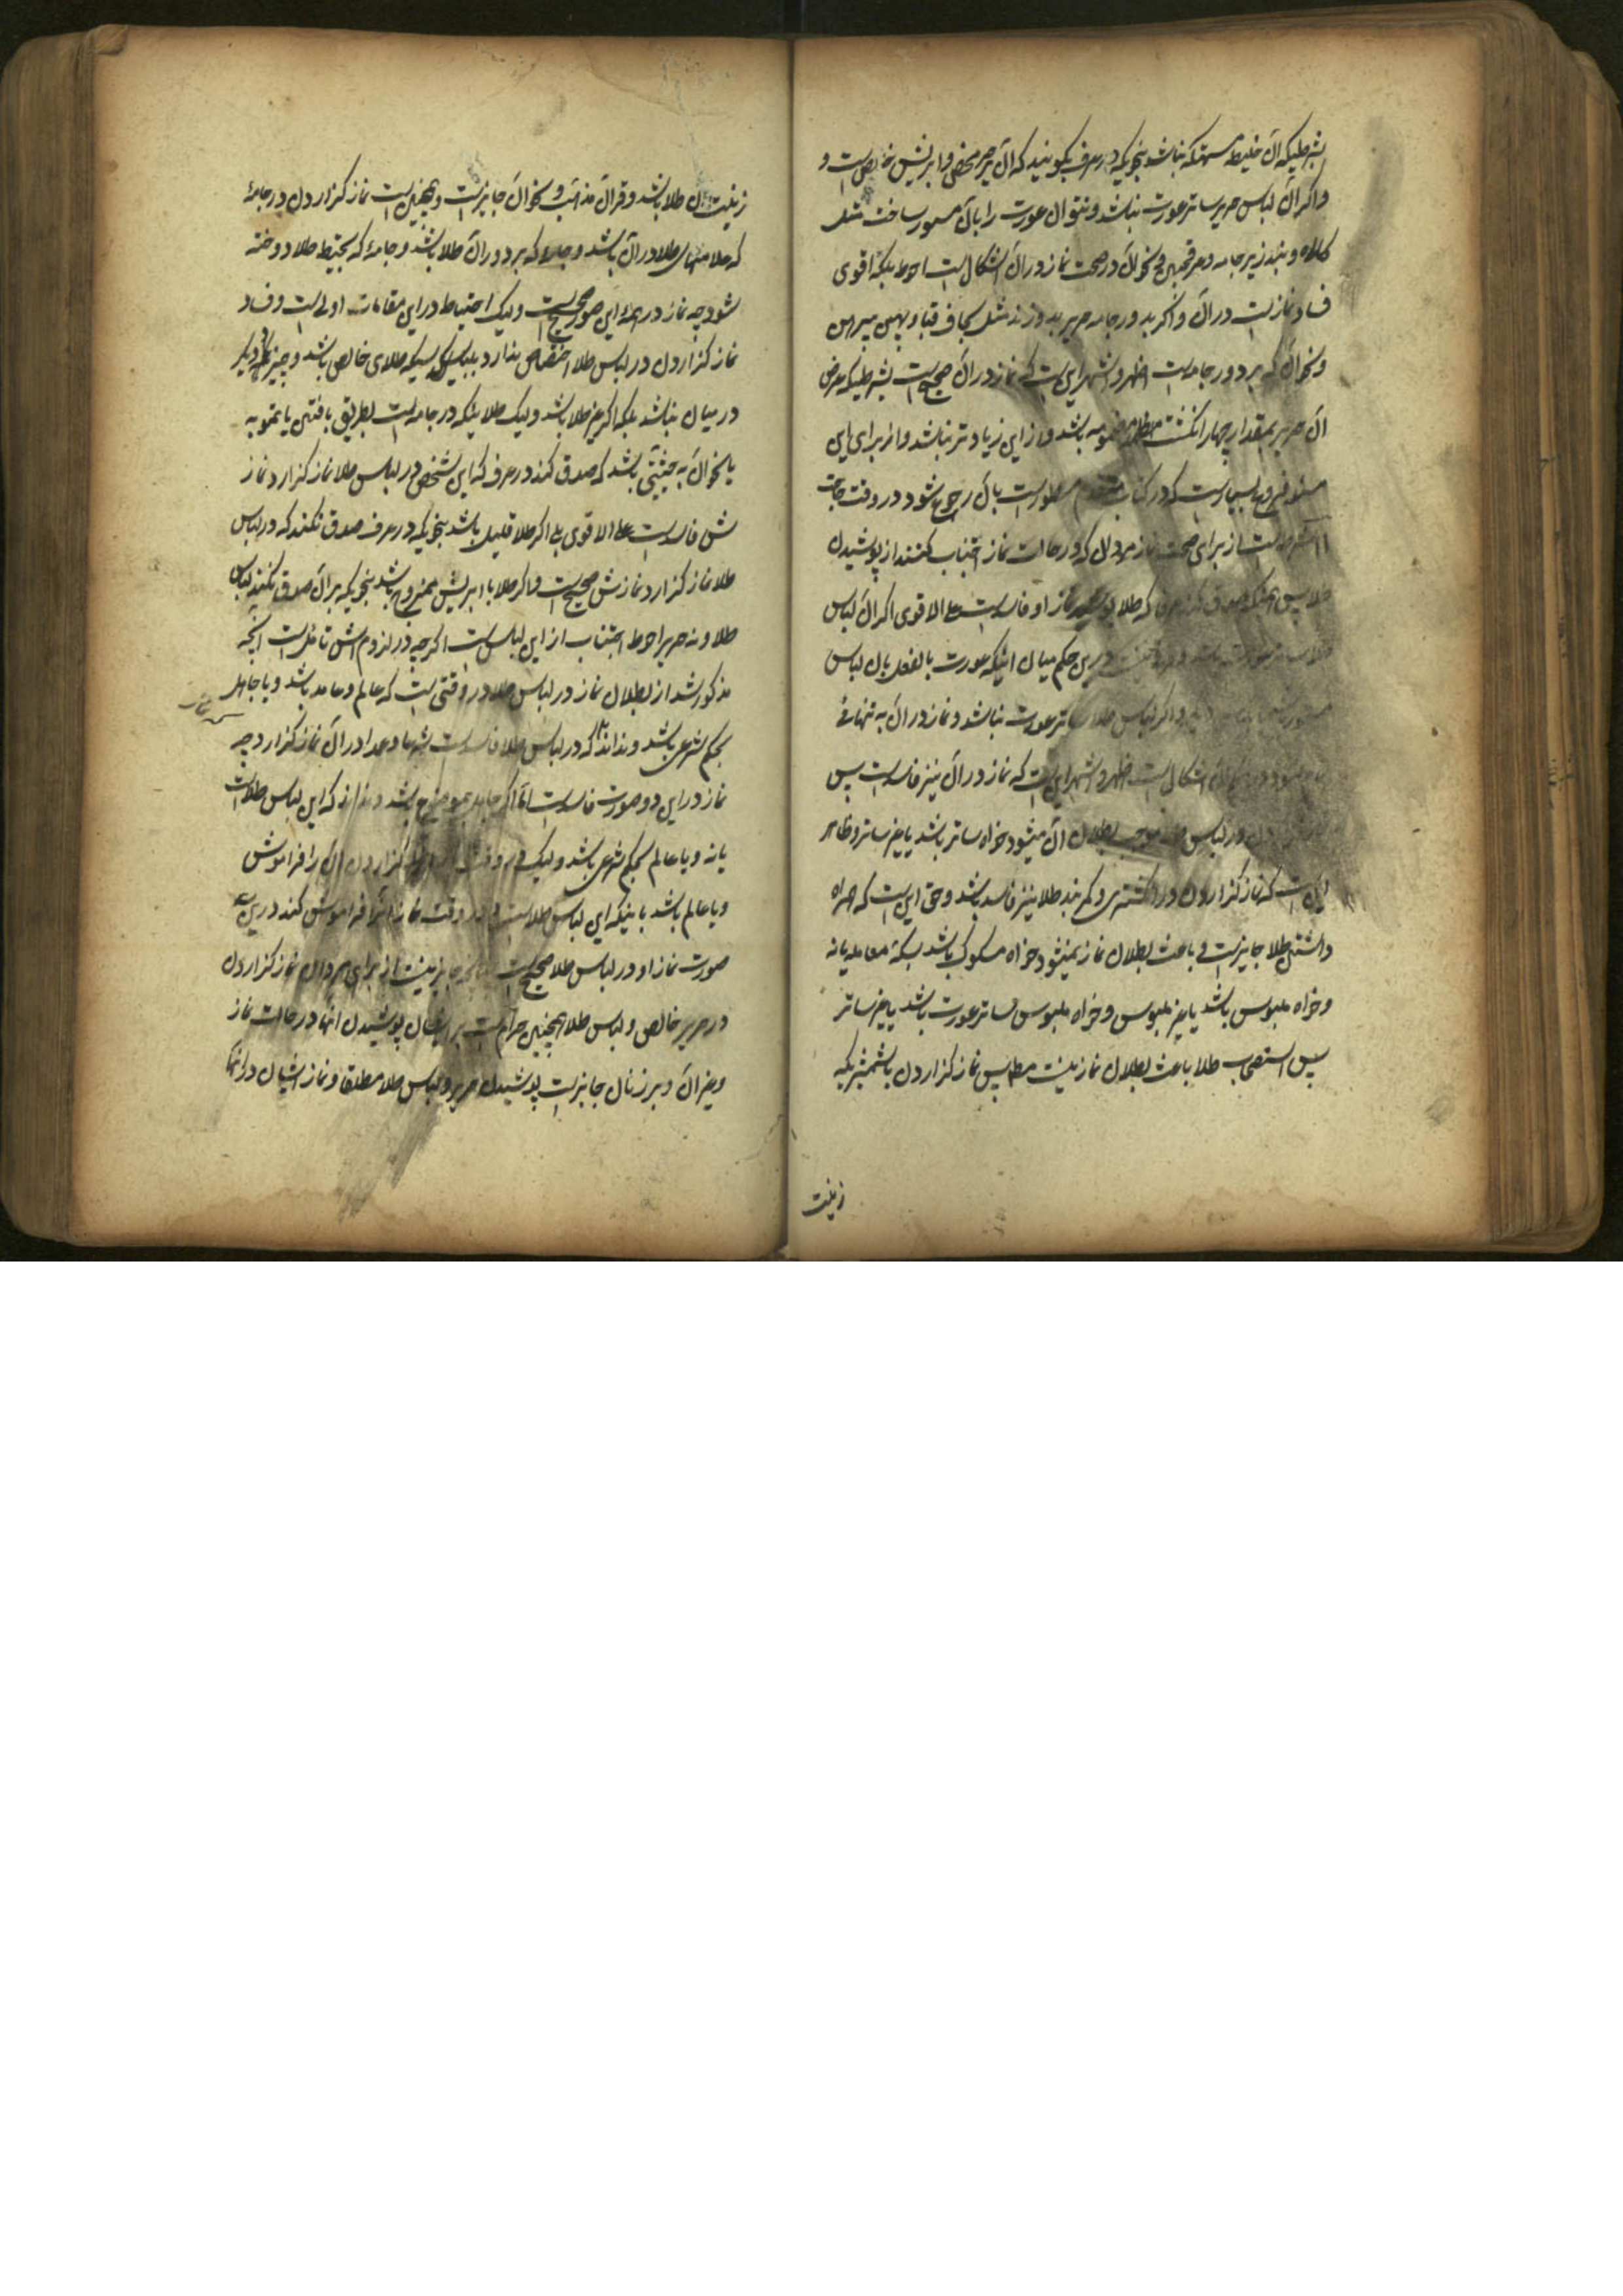 بشرطیکه آن خلیط مستهلکه نباشد بنحویکه در عرف بگویند که آن حریر محض و ابریشم خالص است و
و اگر آن لباس حریر ساتر عورت نباشد و نتوان عورت را بآن مستور ساخت مثل
کلاه و بند زیرجامه و عرقچین و نحو آن در صحت نماز در آن اشکال است احوط بلکه اقوی
فساد نماز است در آن و اگر بدور جامه حریر بدوزند مثل سجاف قبا و پهن پیراهن
و نحو آن که بر دور جامه است اظهر و اشهر این است که نماز در آن صحیح است بشرطیکه عرض
آن حریر بمقدار چهار انگشت مضمومه باشد و از این زیادتر نباشد و از برای این
مسئله فروع بسیار است که در کتاب مسطور است بآن رجوع شود در وقت حاجت
از برای صحت نماز مردان که در حالت نماز اجتناب کنند از پوشیدن
طلا پس نماز او فاسد است علی الاقوی اگر آن لباس
درین حکم میان اینکه عورت بالفعل بآن لباس
و اگر لباس طلا ساتر عورت نباشد و نماز در آن به تنهائی
اشکال است اظهر و اشهر این است که نماز در آن نیز فاسد است پس
در لباس طلا موجب بطلان آن میشود خواه ساتر باشد یا غیر ساتر و ظاهر
این است که نماز گزاردن در انگشتری و کمربند طلا نیز فاسد باشد و حق این است که همراه
داشتن طلا جایز است و باعث بطلان نماز نمیشود خواه مسکوک باشد بسکه معامله یا نه
و خواه ملبوس باشد یا غیر ملبوس و خواه ملبوس ساتر عورت باشد یا غیر ساتر
پس استصحاب طلا باعث بطلان نماز نیست مطلقا پس نماز گزاردن با شمشیریکه
زینت
زینت آن طلا باشد و قرآن مذهب و نحو آن جایز است و همچنین است نماز گزاردن در جامهٔ
که علامتهای طلا در آن باشد و جامهٔ که بر دور آن طلا باشد و جامهٔ که بخیط طلا دوخته
شود چه نماز در همهٔ این صور صحیح است ولیک احتیاط در این مقامات اولی است و فساد
نماز گزاردن در لباس طلا اختصاص ندارد بلباسیکه طلای خالص باشد و چیز دیگر
در میان نباشد بلکه اگر غیر طلا باشد ولیک طلائیکه در جامه است بطریق بافتن یا تمویه
یا نحو آن به حیثیتی باشد که صدق کند در عرف که این شخص در لباس طلا نماز گزارد نماز
ش فاسد است علی الاقوی بلی اگر طلا قلیل باشد بنحویکه در عرف صدق نکند که در لباس
طلا نماز گزارد نمازش صحیح است و اگر طلا با ابریشم ممزوج باشد بنحویکه بر آن صدق نکند لباس
طلا و نه حریر احوط اجتناب از این لباس است اگر چه در لزومش تامل است آنچه
مذکور شد از بطلان نماز در لباس طلا در وقتی است که عالم و عامد باشد و یا جاهل
بحکم شرعی باشد و نداند که در لباس طلا فاسد است و عمدا در آن نماز گزارد چه
نماز در این دو صورت فاسد است اما اگر جاهل بموضوع باشد و نداند که این لباس طلاست
یا نه و یا عالم بحکم شرعی باشد ولیک در وقت نماز گزاردن آن را فراموش
و یا عالم باشد باینکه این لباس طلاست و در وقت نماز آنرا فراموش کند درین
صورت نماز او در لباس طلا صحیح است جایز نیست از برای مردان نماز گزاردن
در حریر خالص و لباس طلا همچنین حرام است بر ایشان پوشیدن آنها در حالت نماز
و غیر آن و بر زنان جایز است پوشیدن حریر و لباس طلا مطلقا و نماز ایشان در آنها